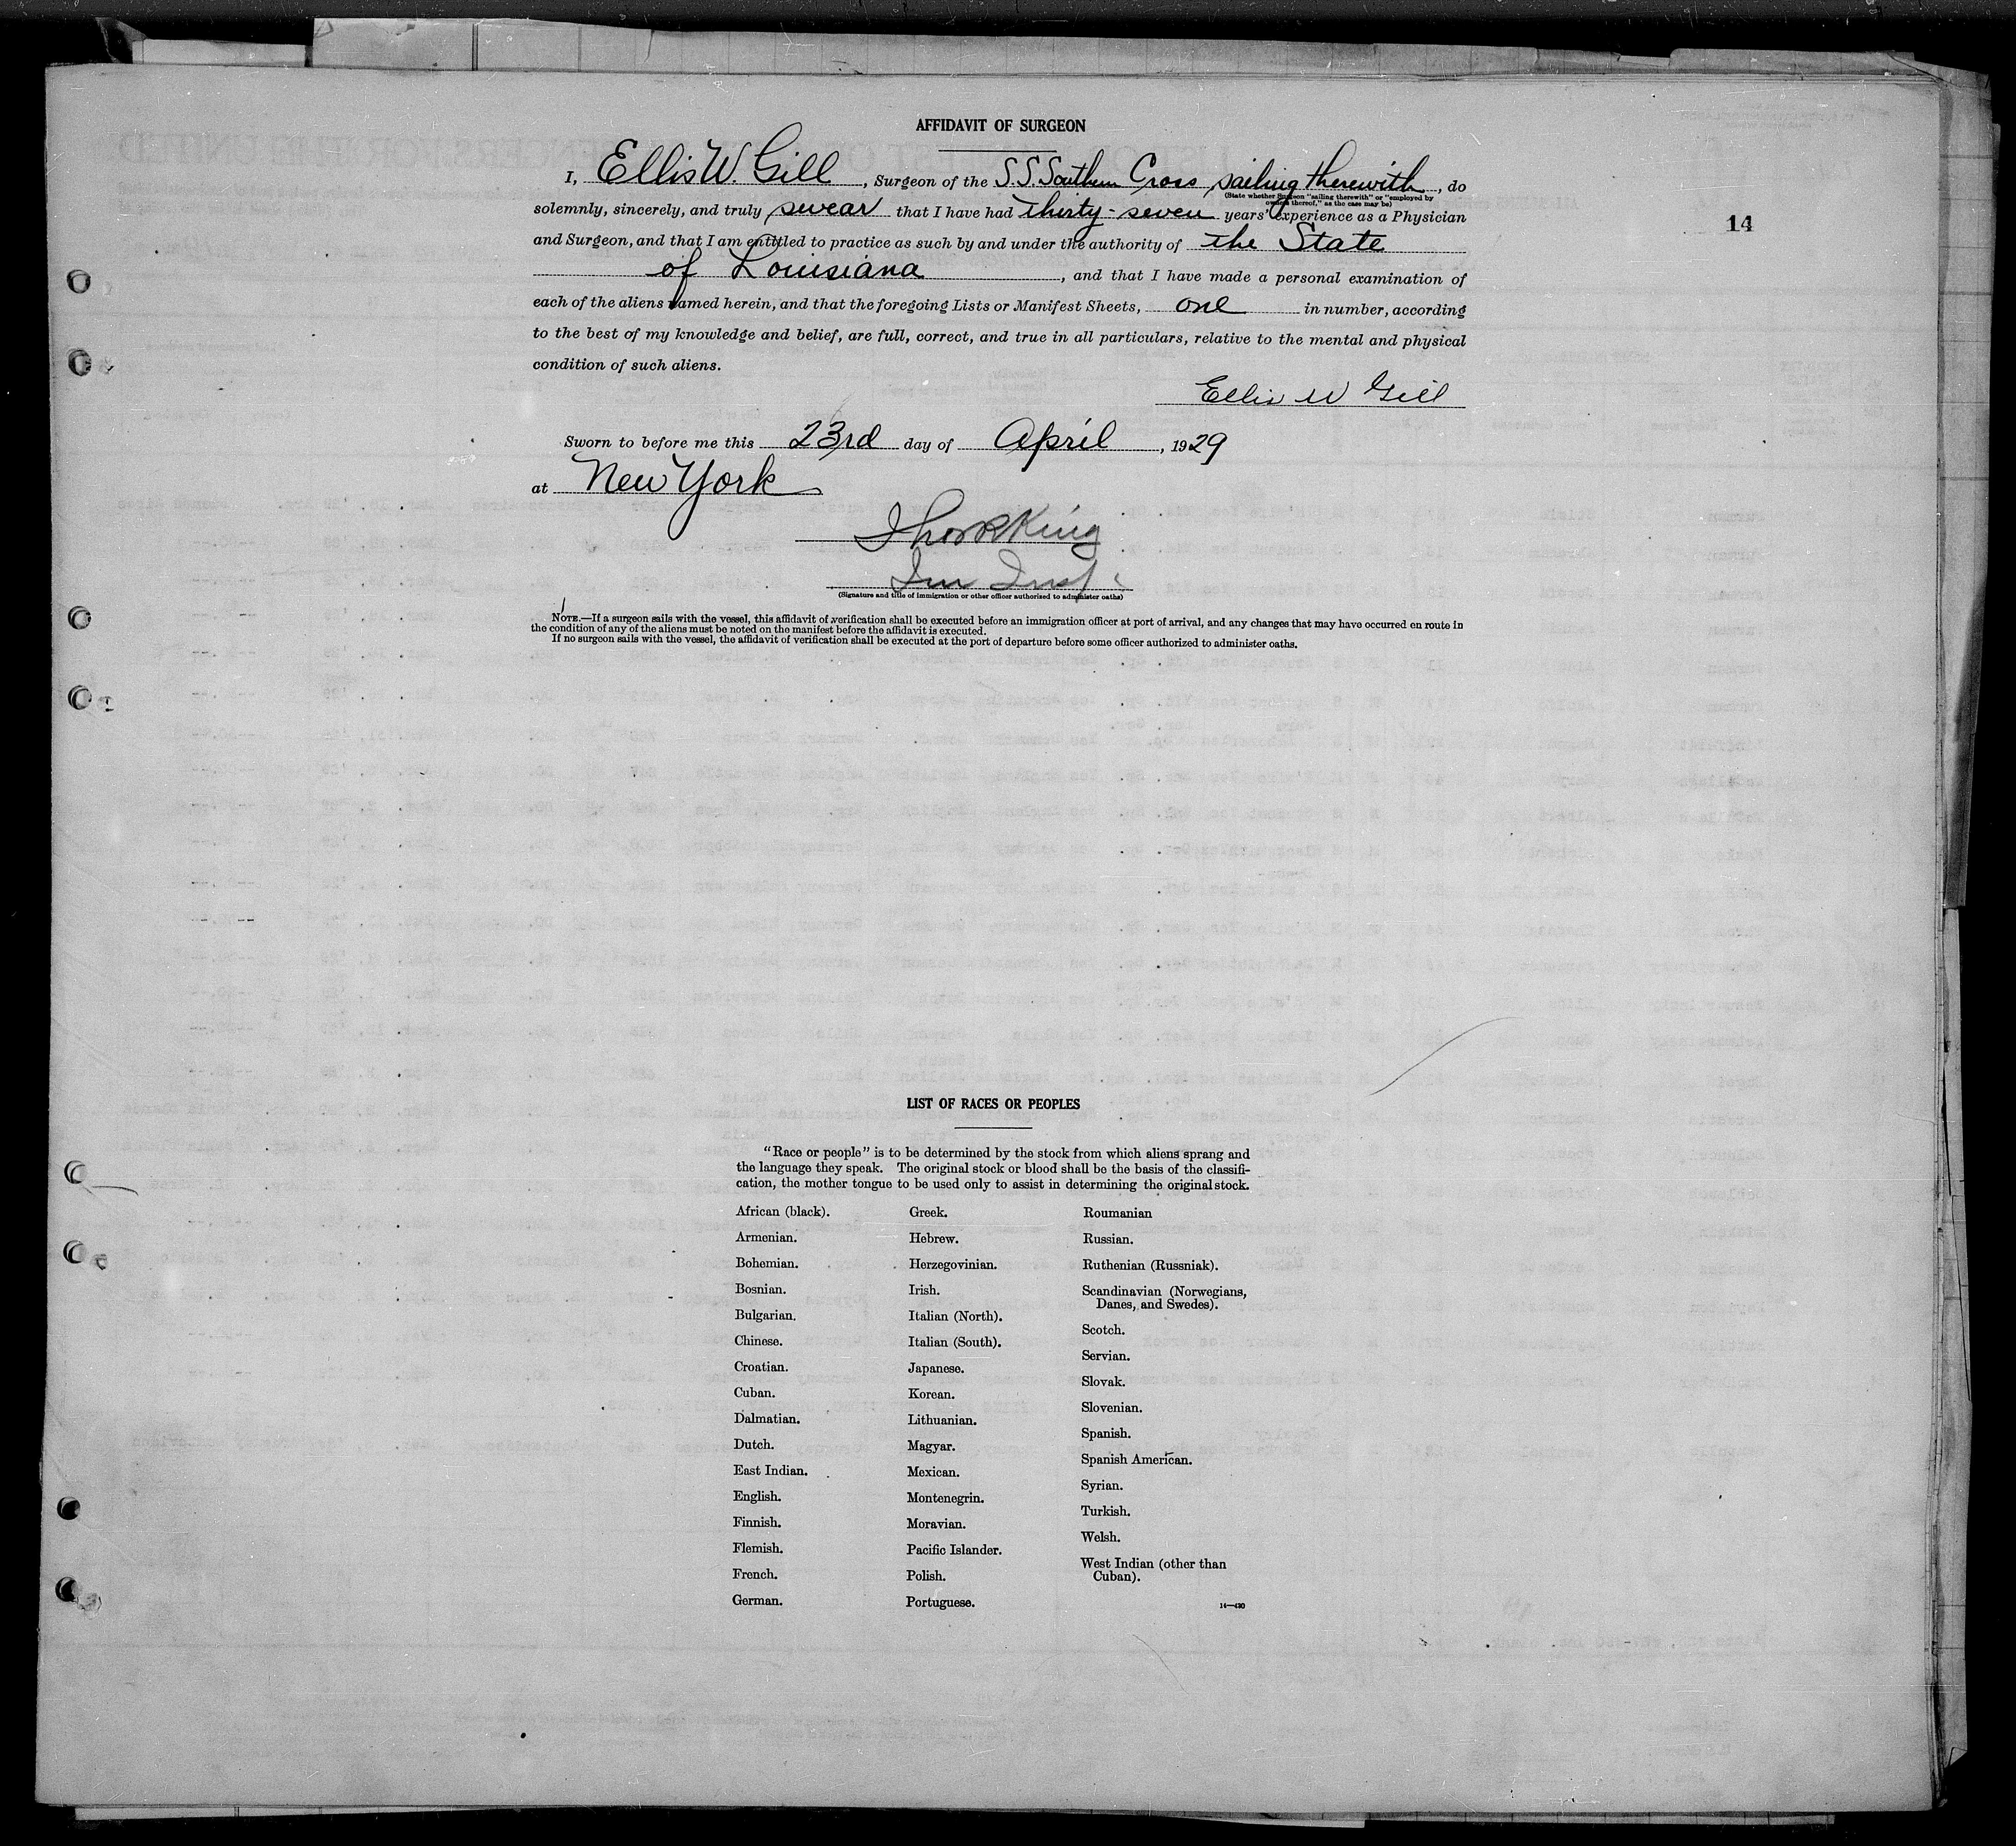 AFFIDAVIT OF SURGEON
I, Ellis W. Gill, Surgeon of the S.S. Southern Cross sailing therewith, do
(State whether Surgeon "sailing therewith" or "employed by
owners thereof," as the case may be)
solemnly, sincerely, and truly swear that I have had thirty-seven years' experience as a Physician
14
and Surgeon, and that I am entitled to practice as such by and under the authority of the State
of Louisiana, and that I have made a personal examination of
each of the aliens named herein, and that the foregoing Lists or Manifest Sheets, one in number, according
to the best of my knowledge and belief, are full, correct, and true in all particulars, relative to the mental and physical
condition of such aliens.
Ellis W Gill
Sworn to before me this 23rd day of April, 1929
at New York
King
Im Insp.
(Signature and title of immigration or other officer authorized to administer oaths)
NOTE.—If a surgeon sails with the vessel, this affidavit of verification shall be executed before an immigration officer at port of arrival, and any changes that may have occurred en route in
the condition of any of the aliens must be noted on the manifest before the affidavit is executed.
If no surgeon sails with the vessel, the affidavit of verification shall be executed at the port of departure before some officer authorized to administer oaths.
LIST OF RACES OR PEOPLES
"Race or people" is to be determined by the stock from which aliens sprang and
the language they speak. The original stock or blood shall be the basis of the classifi-
cation, the mother tongue to be used only to assist in determining the original stock.
African (black).
Armenian.
Bohemian.
Bosnian.
Bulgarian.
Chinese.
Croatian.
Cuban.
Dalmatian.
Dutch.
East Indian.
English.
Finnish.
Flemish.
French.
German.
Greek.
Hebrew.
Herzegovinian.
Irish.
Italian (North).
Italian (South).
Japanese.
Korean.
Lithuanian.
Magyar.
Mexican.
Montenegrin.
Moravian.
Pacific Islander.
Polish.
Portuguese.
Roumanian
Russian.
Ruthenian (Russniak).
Scandinavian (Norwegians,
Danes, and Swedes).
Scotch.
Servian.
Slovak.
Slovenian.
Spanish.
Spanish American.
Syrian.
Turkish.
Welsh.
West Indian (other than
Cuban).
14—430